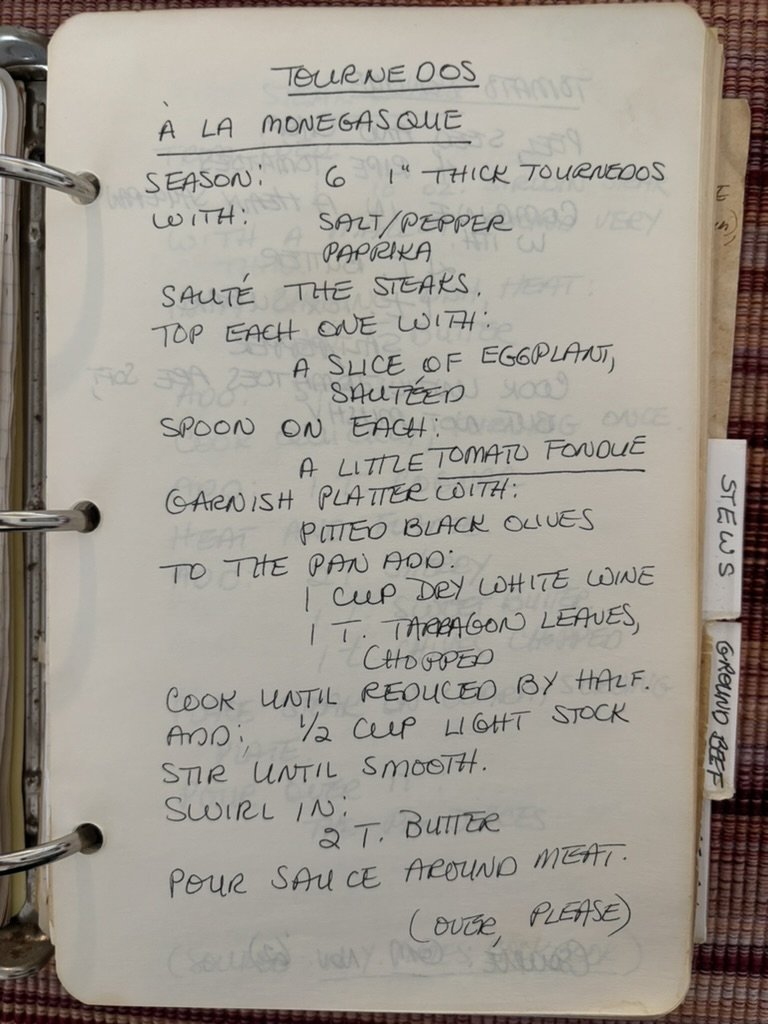 TOURNEDOS
À LA MONEGASQUE
SEASON: 6 1" THICK TOURNEDOS
WITH: SALT/PEPPER
PAPRIKA
SAUTÉ THE STEAKS.
TOP EACH ONE WITH:
A SLICE OF EGGPLANT,
SAUTÉED
SPOON ON EACH:
A LITTLE TOMATO FONDUE
GARNISH PLATTER WITH:
PITTED BLACK OLIVES
TO THE PAN ADD:
1 CUP DRY WHITE WINE
1 T. TARRAGON LEAVES,
CHOPPED
COOK UNTIL REDUCED BY HALF.
ADD: 1/2 CUP LIGHT STOCK
STIR UNTIL SMOOTH.
SWIRL IN:
2 T. BUTTER
POUR SAUCE AROUND MEAT.
(OVER, PLEASE)
STEWS
GROUND BEEF